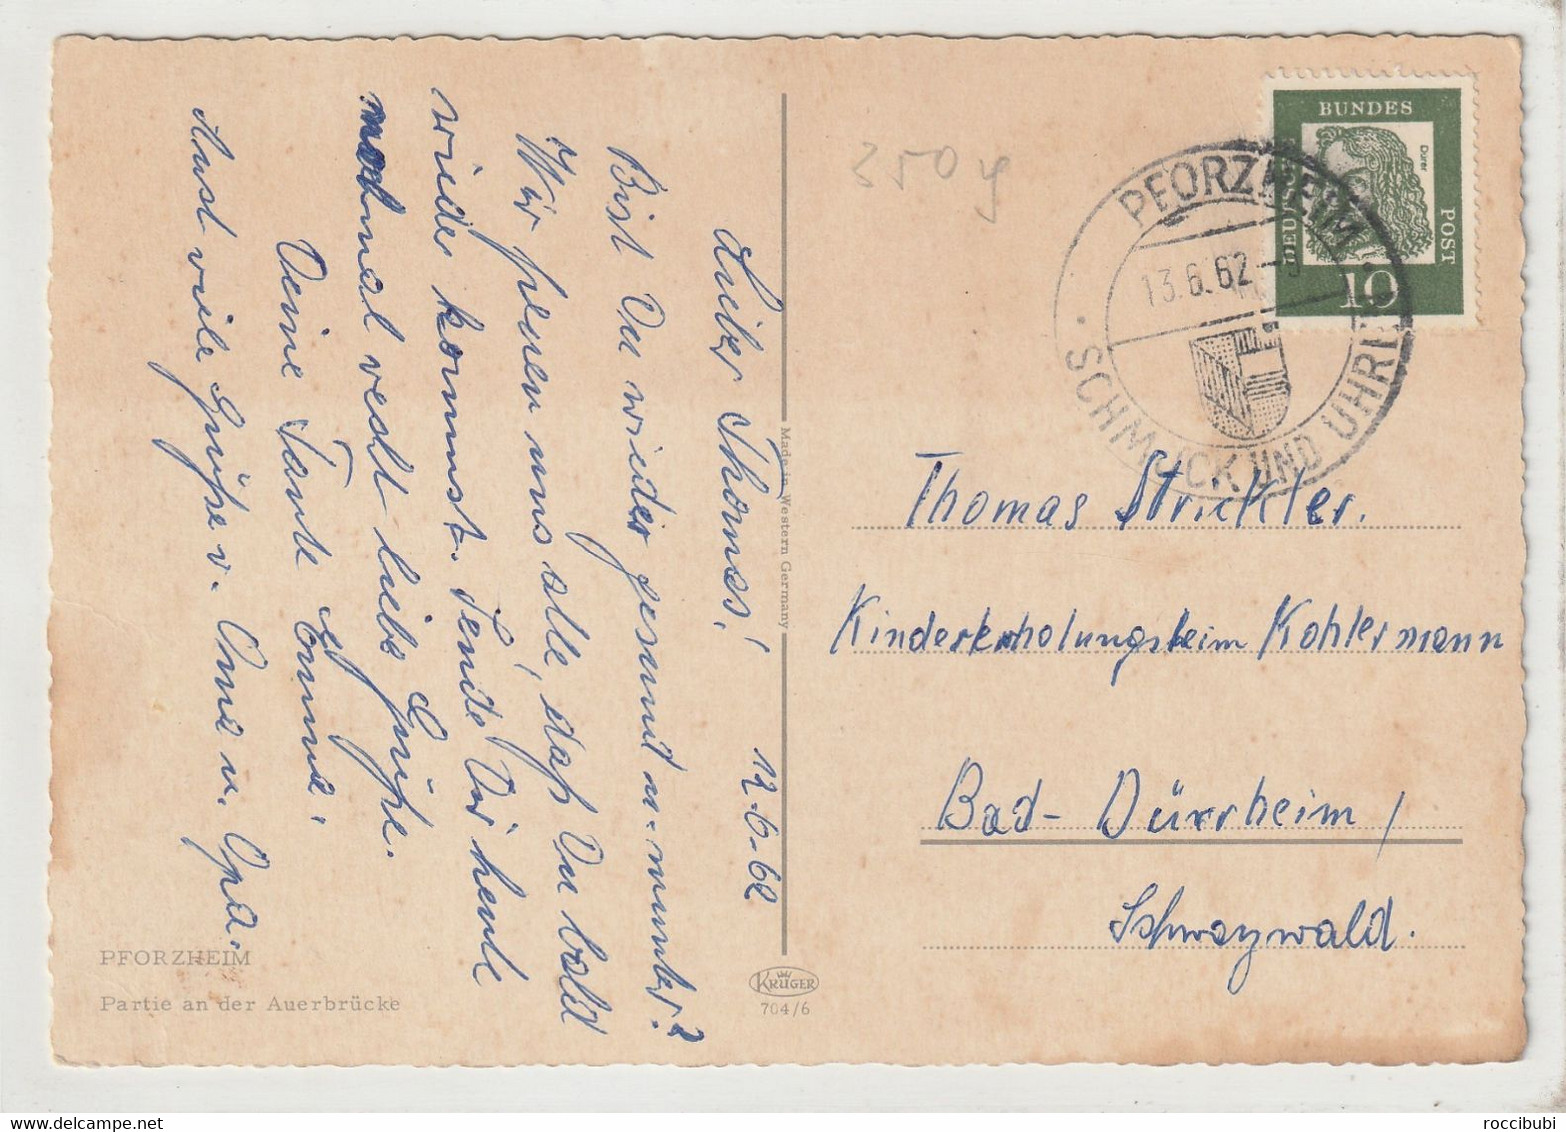 12.6.62
Lieber Thomas!
Bist Du wieder gesund u. munter?
Wir freuen uns alle, daß Du bald
wieder kommst. Sende Dir heute
nochmal recht liebe Grüße.
Deine Tante Emma.
Auch viele Grüße v. Oma u. Opa.
PFORZHEIM
Partie an der Auerbrücke
Made in Western Germany
KRÜGER
704/6
350 y
BUNDES
POST
Dürer
10
PFORZHEIM
13.6.62
SCHMUCK UND UHREN
Thomas Strickler.
Kindererholungsheim Kohlermann
Bad-Dürrheim /
Schwarzwald.
roccibubi